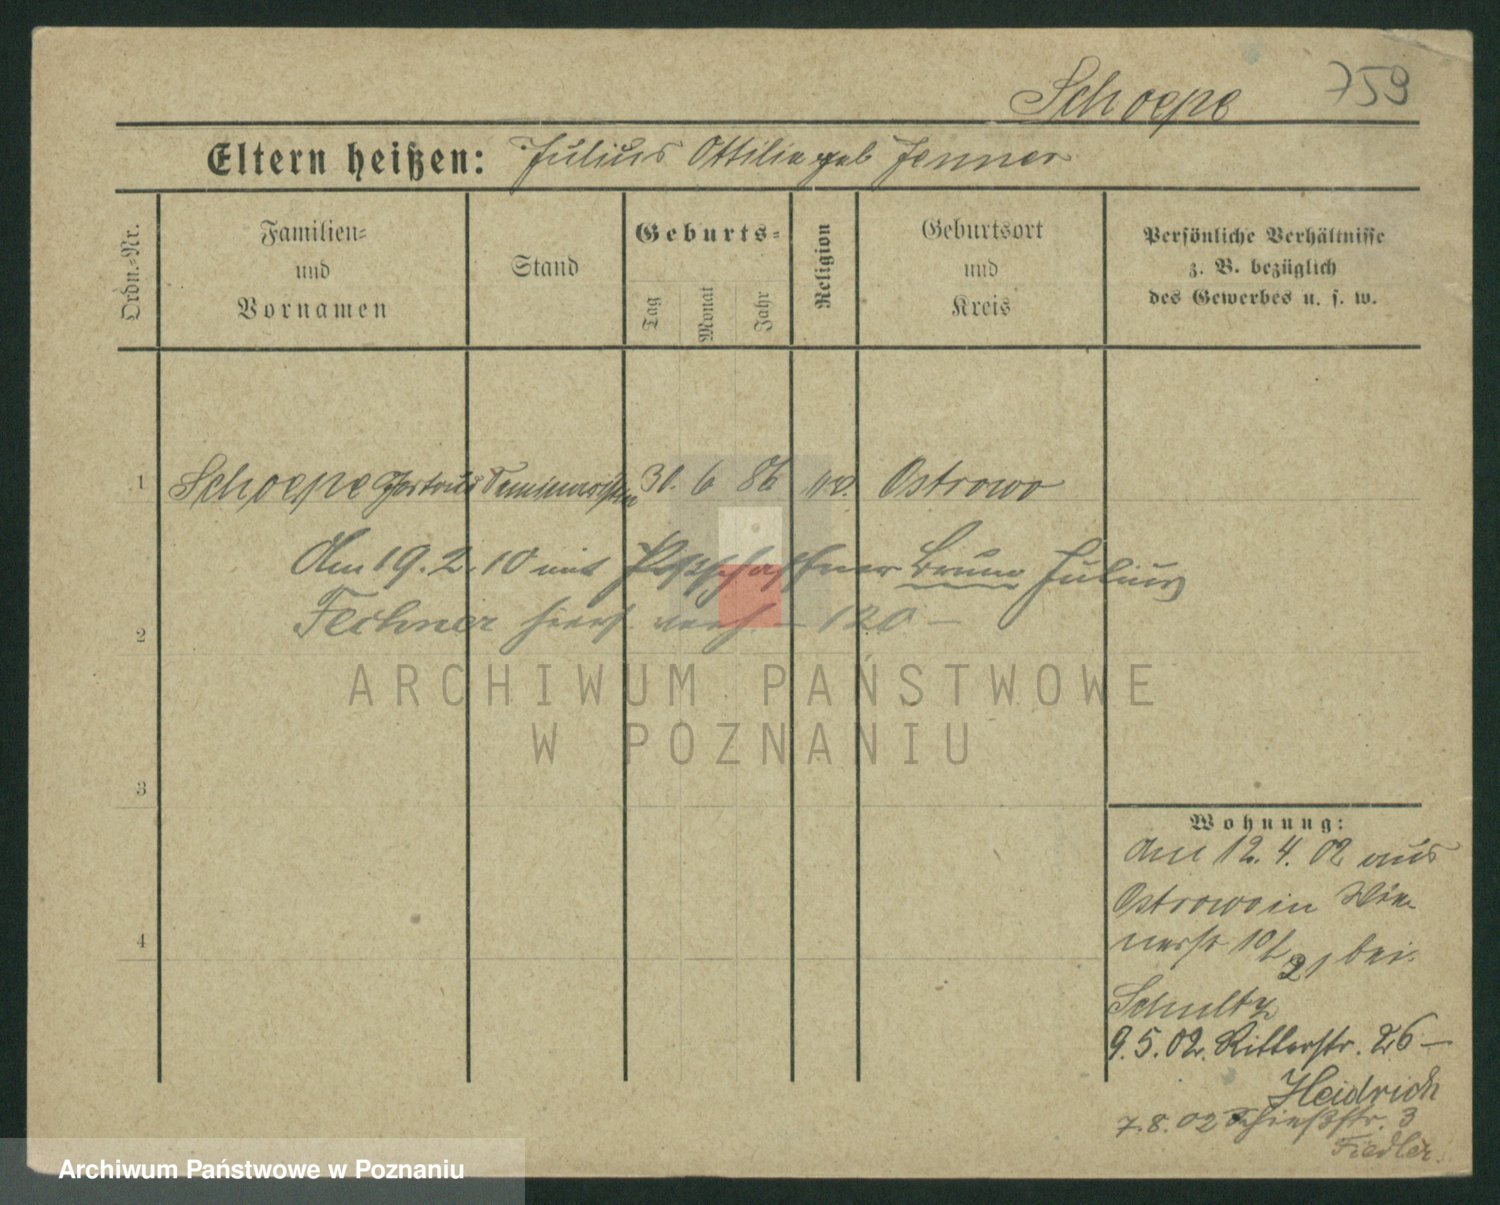 Schoepe 759
Eltern heißen: Julius Ottilie geb Jenner
Ordn.=Nr.
Familien=
und
Vornamen
Stand
Geburts=
Tag
Monat
Jahr
Religion
Geburtsort
und
Kreis
Persönliche Verhältnisse
z. B. bezüglich
des Gewerbes u. s. w.
1 Schoepe Gertrud Seminaristin 30. 6 86 ev. Ostrowo
Am 19.2.10 mit Postschaffner Bruno Julius
2 Fechner hier verh. – 120 –
3
4
Wohnung:
Am 12.4.02 aus
Ostrowo in Wie-
nerstr 10/ 21 bei
Schultz
9.5.02. Ritterstr. 26 –
Heidrich
7.8.02 Schießstr. 3
Fiedler.
ARCHIWUM PAŃSTWOWE
W POZNANIU
Archiwum Państwowe w Poznaniu